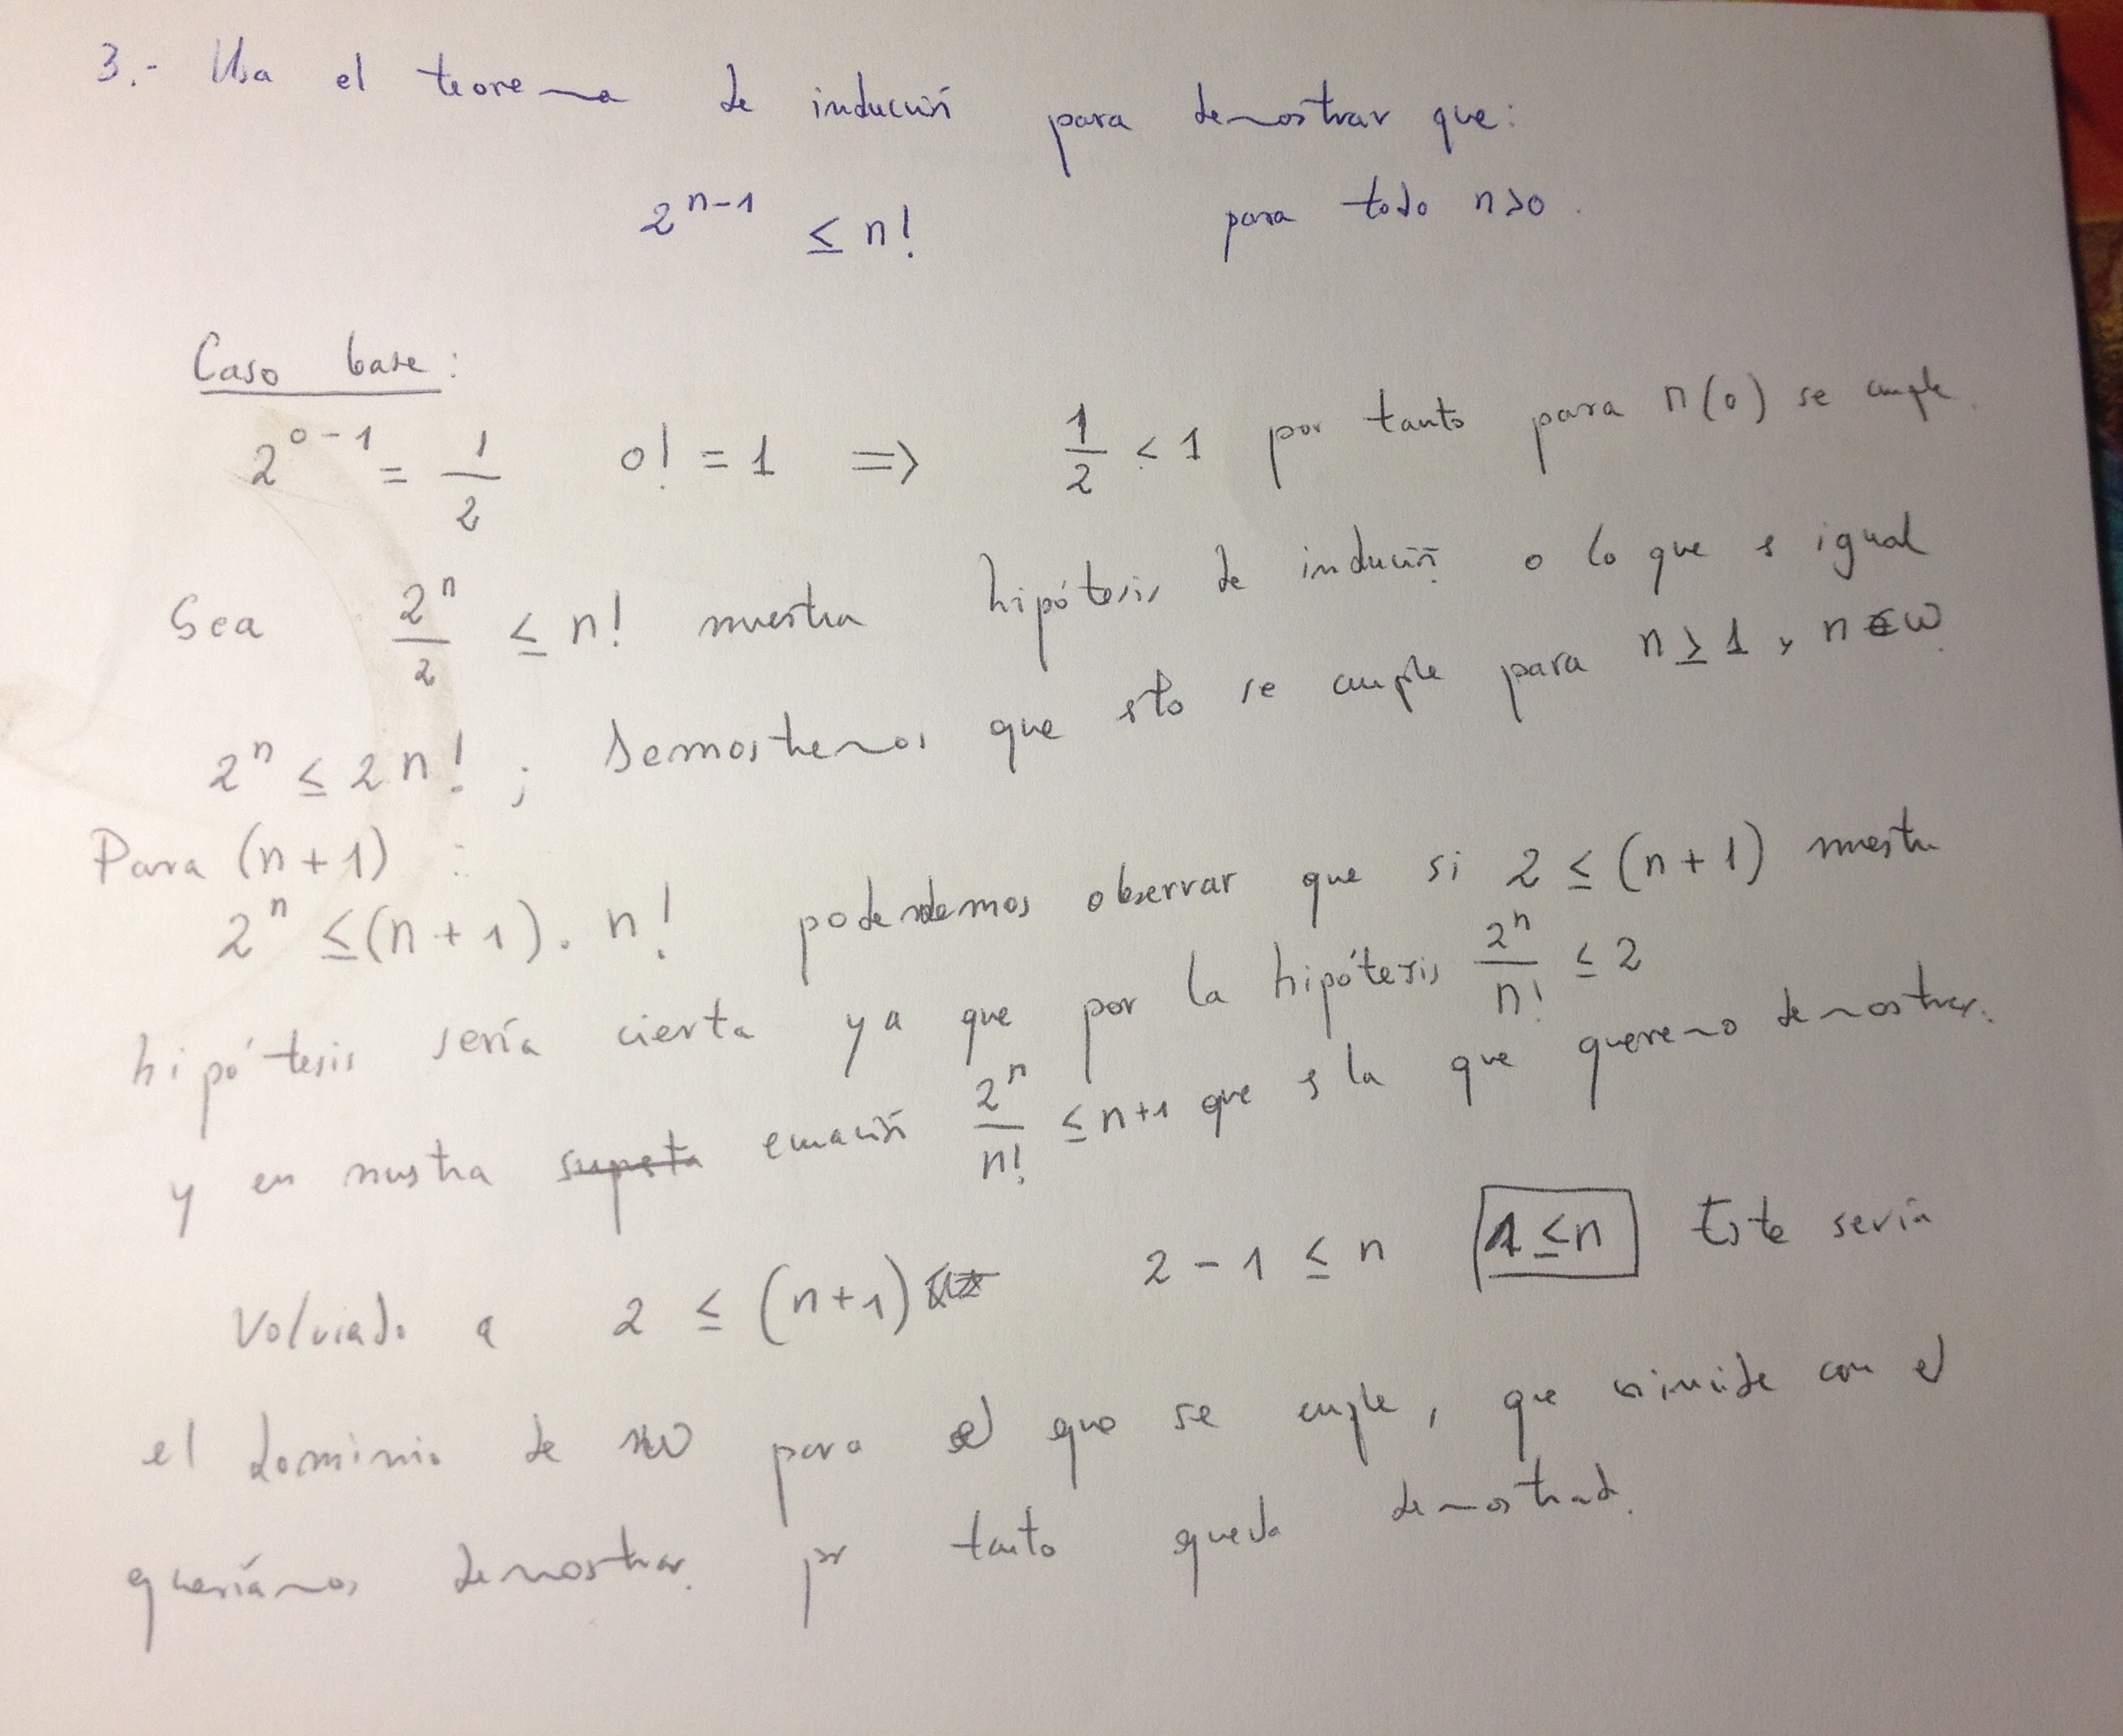 3.- Usa el teorema de inducción para demostrar que:
2^{n-1} ≤ n! para todo n>0.
Caso base:
2^{0-1} = 1/2 0! = 1 => 1/2 < 1 por tanto para n(0) se cumple.
Sea 2^n/2 ≤ n! nuestra hipótesis de inducción o lo que es igual
2^n ≤ 2n! ; Demostremos que esto se cumple para n ≥ 1 y n ∈ ω.
Para (n+1) :
2^n ≤ (n+1). n! podemos observar que si 2 ≤ (n+1) nuestra
hipótesis sería cierta ya que por la hipótesis 2^n/n! ≤ 2
y en nuestra ecuación 2^n/n! ≤ n+1 que es la que queremos demostrar.
Volviendo a 2 ≤ (n+1) 2-1 ≤ n 1 ≤ n Este sería
el dominio de para el que se cumple, que coincide con el
queríamos demostrar. por tanto queda demostrado.